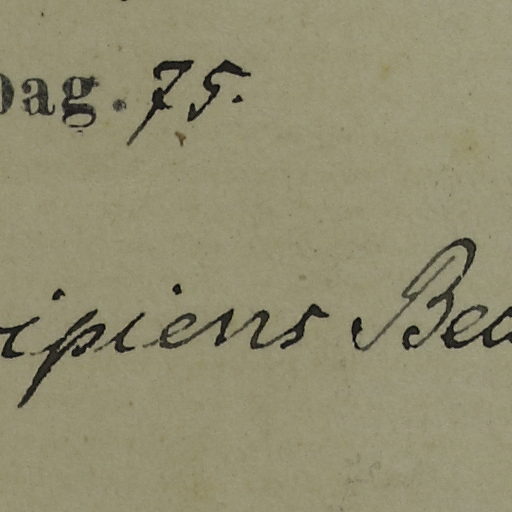 pag. 75.
ipiens Bea